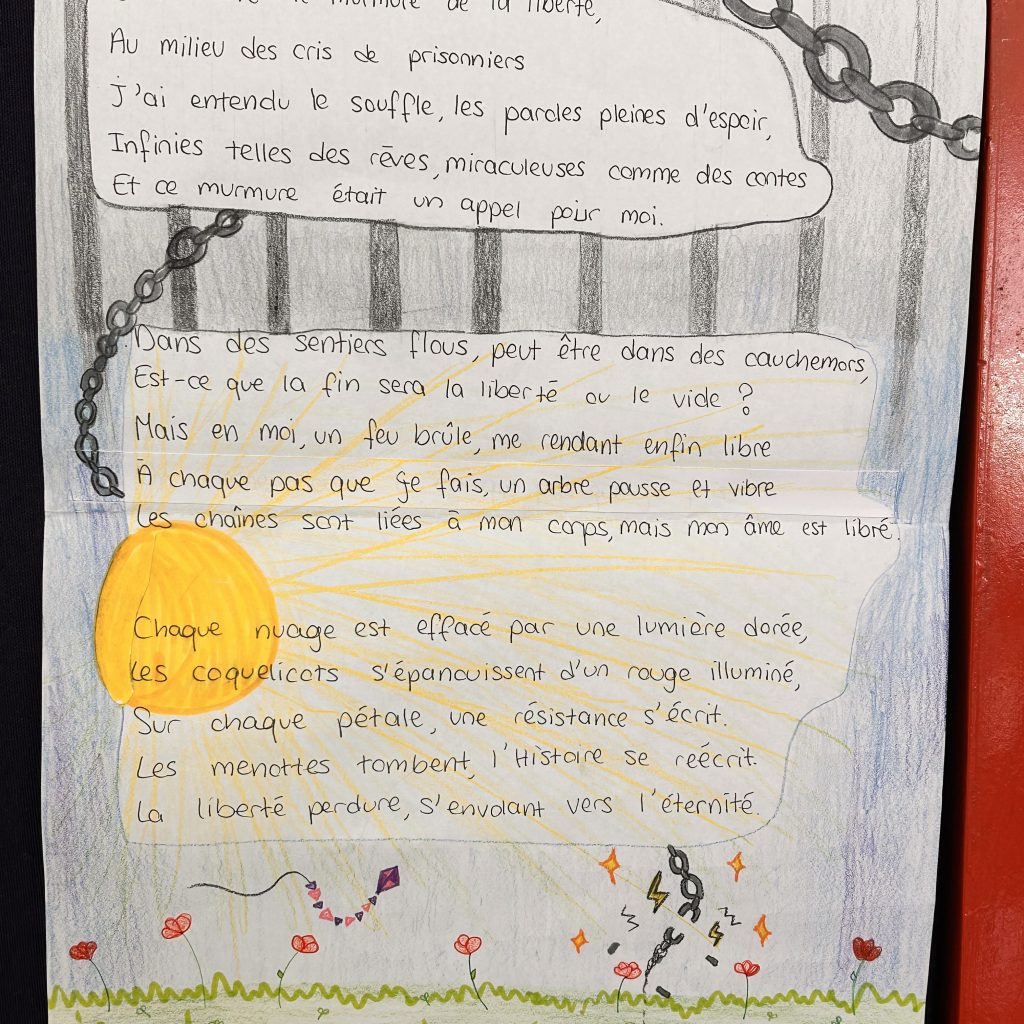 murmure de la liberté,
Au milieu des cris de prisonniers
J'ai entendu le souffle, les paroles pleines d'espoir,
Infinies telles des rêves, miraculeuses comme des contes
Et ce murmure était un appel pour moi.
Dans des sentiers flous, peut être dans des cauchemors,
Est-ce que la fin sera la liberté ou le vide ?
Mais en moi, un feu brûle, me rendant enfin libre
À chaque pas que je fais, un arbre pousse et vibre
Les chaînes sont liées à mon corps, mais mon âme est libré.
Chaque nuage est effacé par une lumière dorée,
Les coquelicots s'épanouissent d'un rouge illuminé,
Sur chaque pétale, une résistance s'écrit.
Les menottes tombent, l'Histoire se réécrit.
La liberté perdure, s'envolant vers l'éternité.